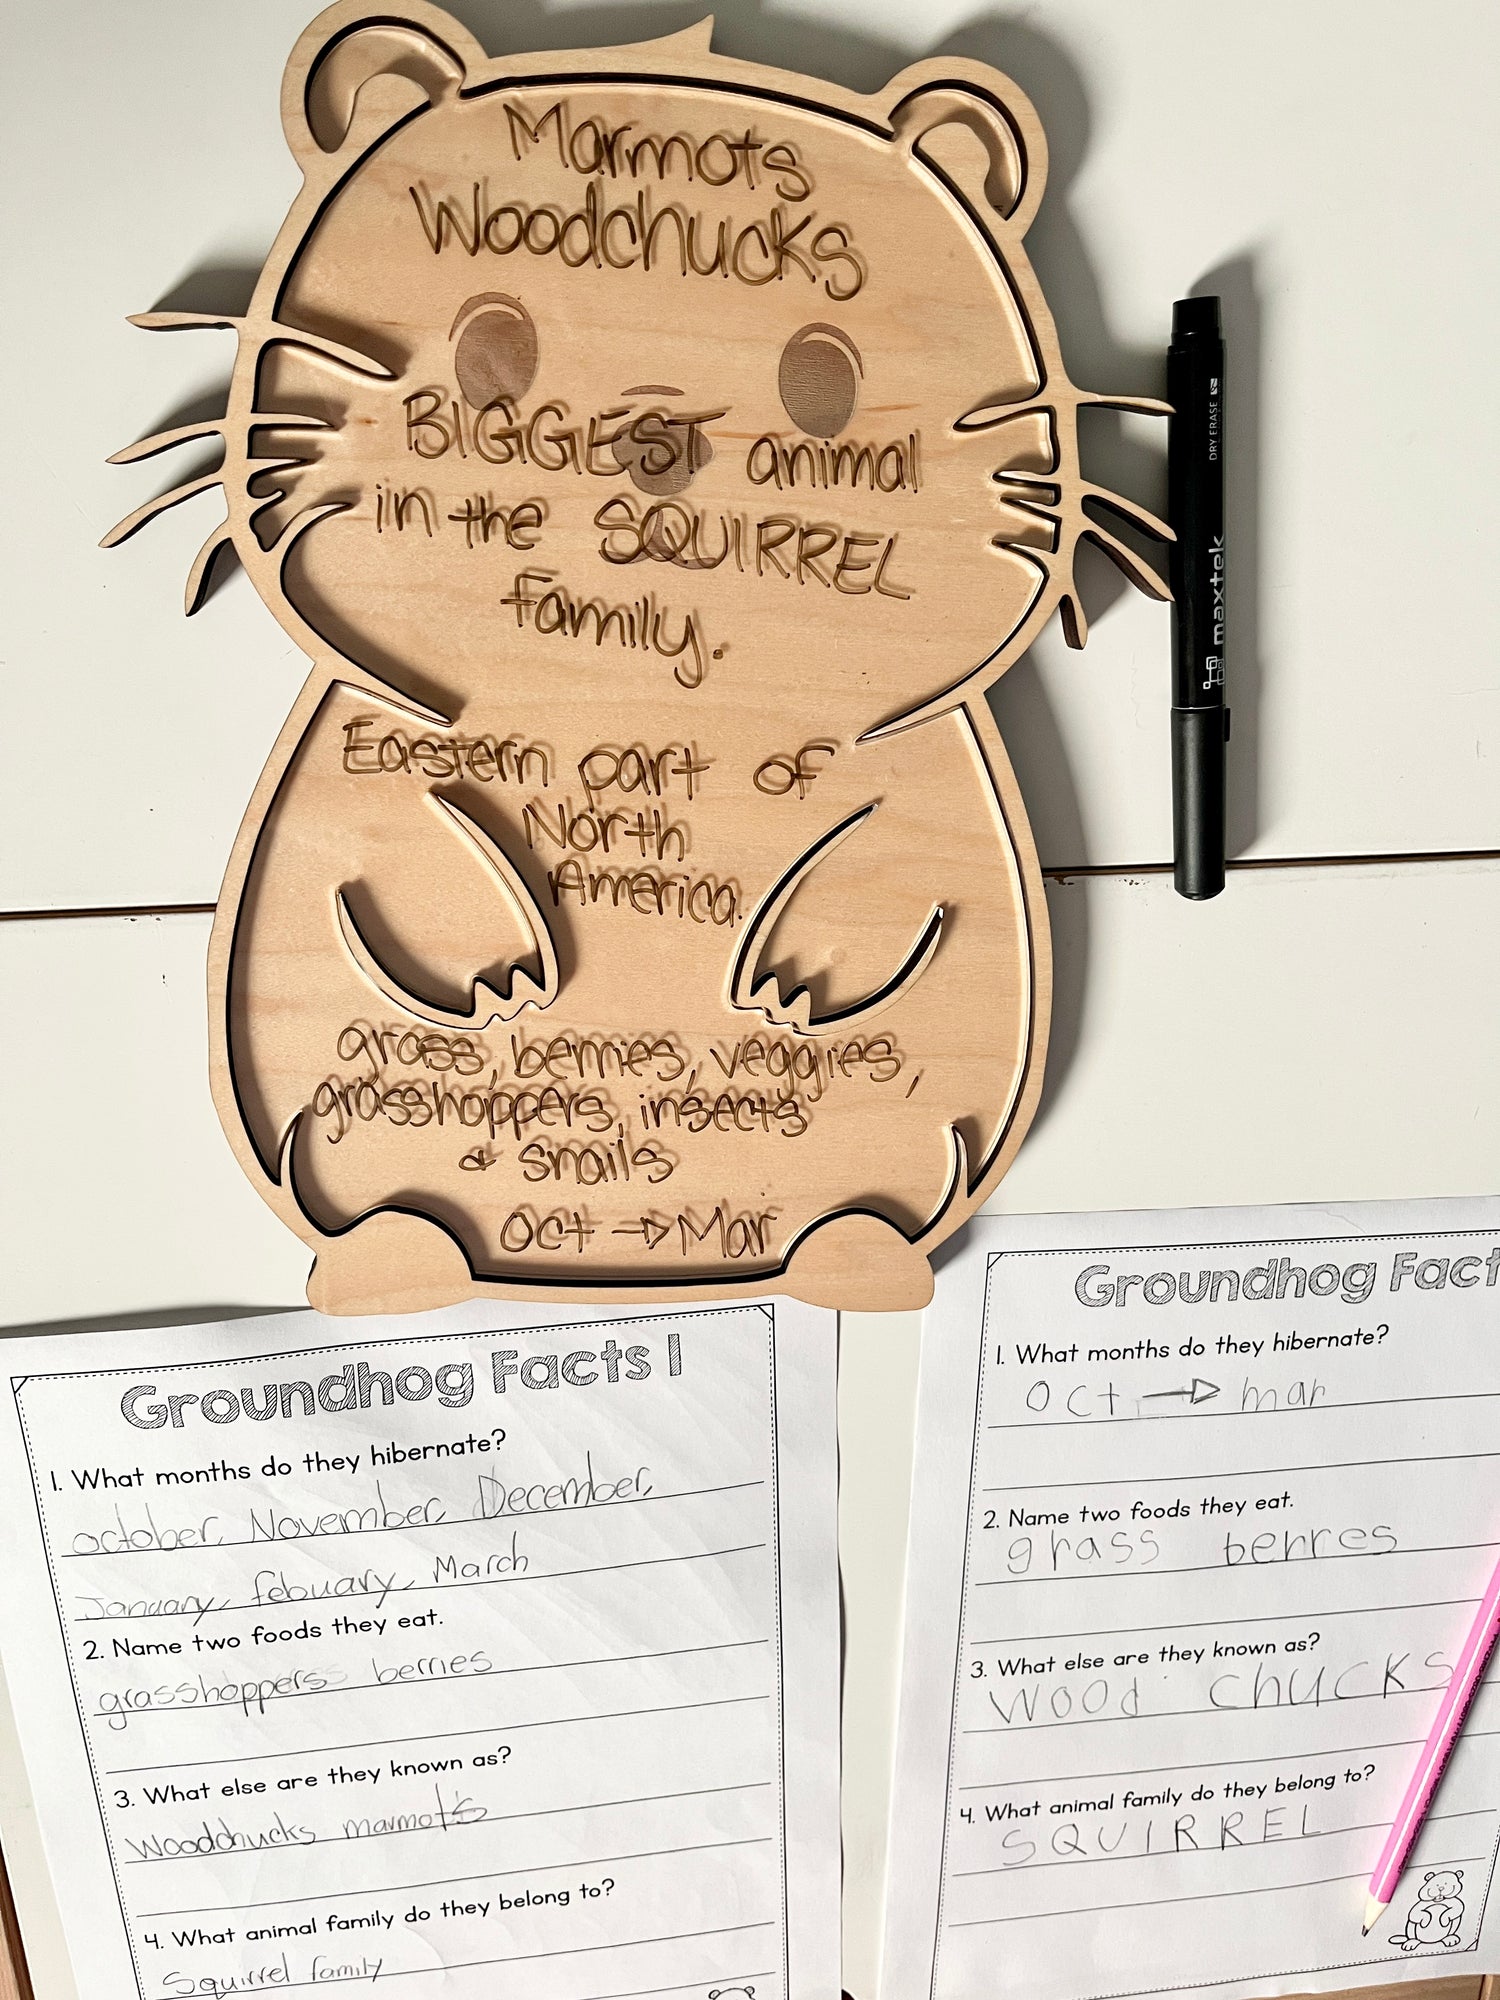 Marmots
Woodchucks
BIGGEST animal
in the SQUIRREL
family.
Eastern part of
North
America.
grass, berries, veggies,
grasshoppers, insects
& snails
Oct → Mar
DRY ERASE
maxtek
Groundhog Facts 1
1. What months do they hibernate?
october, November, December,
January, febuary, March
2. Name two foods they eat.
grasshoppers berries
3. What else are they known as?
Woodchucks marmots
4. What animal family do they belong to?
Squirrel family
Groundhog Fact
1. What months do they hibernate?
Oct → mar
2. Name two foods they eat.
grass berres
3. What else are they known as?
Wood chucks
4. What animal family do they belong to?
SQUIRREL